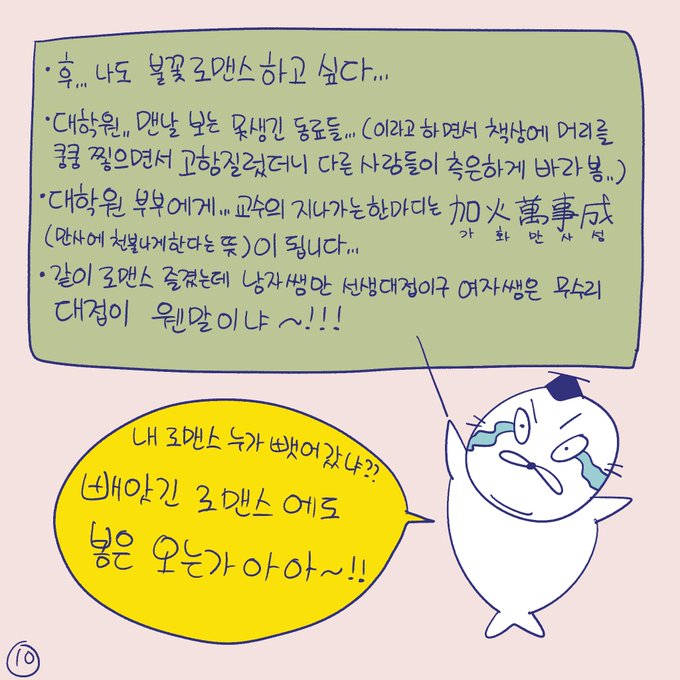 · 후... 나도 불꽃로맨스하고 싶다...
· 대학원,, 맨날 보는 못생긴 동료들... (이라고 하면서 책상에 머리를
쿵쿵 찧으면서 고함질렀더니 다른 사람들이 측은하게 바라봄..)
· 대학원 부부에게... 교수의 지나가는한마디는 加火萬事成
가 화 만 사 성
(만사에 천불나게한다는 뜻)이 됩니다...
· 같이 로맨스 즐겼는데 남자쌤만 선생대접이구 여자쌤은 무수리
대접이 웬말이냐~!!!
내 로맨스 누가 뺏어갔냐??
빼앗긴 로맨스에도
봄은 오는가아아~!!
10